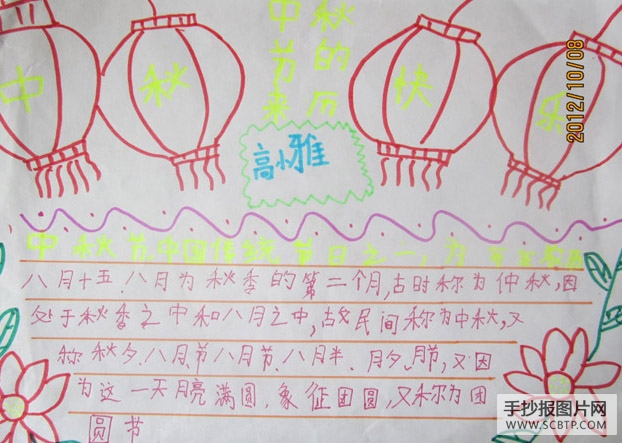 中 秋 快 乐
中秋
节的
来历
高小雅
2012/10/08
中秋节中国传统节日之一,为
八月十五.八月为秋季的第二个月,古时称为仲秋,因
处于秋季之中和八月之中,故民间称为中秋,又
称秋夕.八月节八月节.八月半.月夕.月节,又因
为这一天月亮满圆.象征团圆,又称为团
圆节
手抄报图片网
WWW.SCBTP.COM